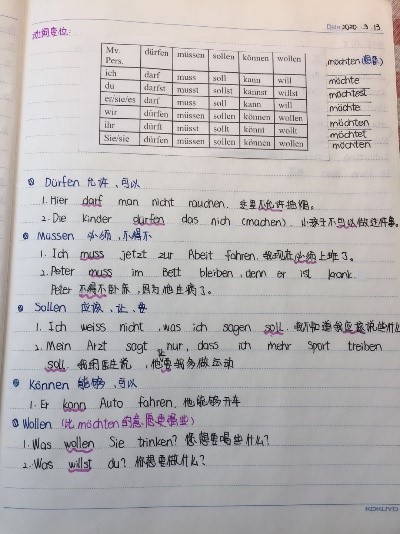 Date 2020 . 3 . 13
Mv. Pers. dürfen müssen sollen können wollen möchten
ich darf muss soll kann will möchte
du darfst musst sollst kannst willst möchtest
er/sie/es darf muss soll kann will möchte
wir dürfen müssen sollen können wollen möchten
ihr dürft müsst sollt könnt wollt möchtet
Sie/sie dürfen müssen sollen können wollen möchten
Dürfen 允许、可以
1. Hier darf man nicht rauchen. 这里不允许抽烟。
2. Die Kinder dürfen das nich (machen). 小孩子不可以做这件事。
Müssen 必须、不得不
1. Ich muss jetzt zur Abeit fahren. 我现在必须上班了。
2. Peter muss im Bett bleiben, denn er ist krank.
Peter 不得不卧床，因为他生病了。
Sollen 应该、让、要
1. Ich weiss nicht, was ich sagen soll. 我不知道我应该说些什么
2. Mein Arzt sagt nur, dass ich mehr Sport treiben
soll. 我的医生说，他让要我多做运动
Können 能够、可以
1. Er kann Auto fahren. 他能够开车
Wollen (比 möchten 的意愿更强些)
1. Was wollen Sie trinken? 您想要喝些什么？
2. Was willst du? 你想要做什么？
KOKUYO